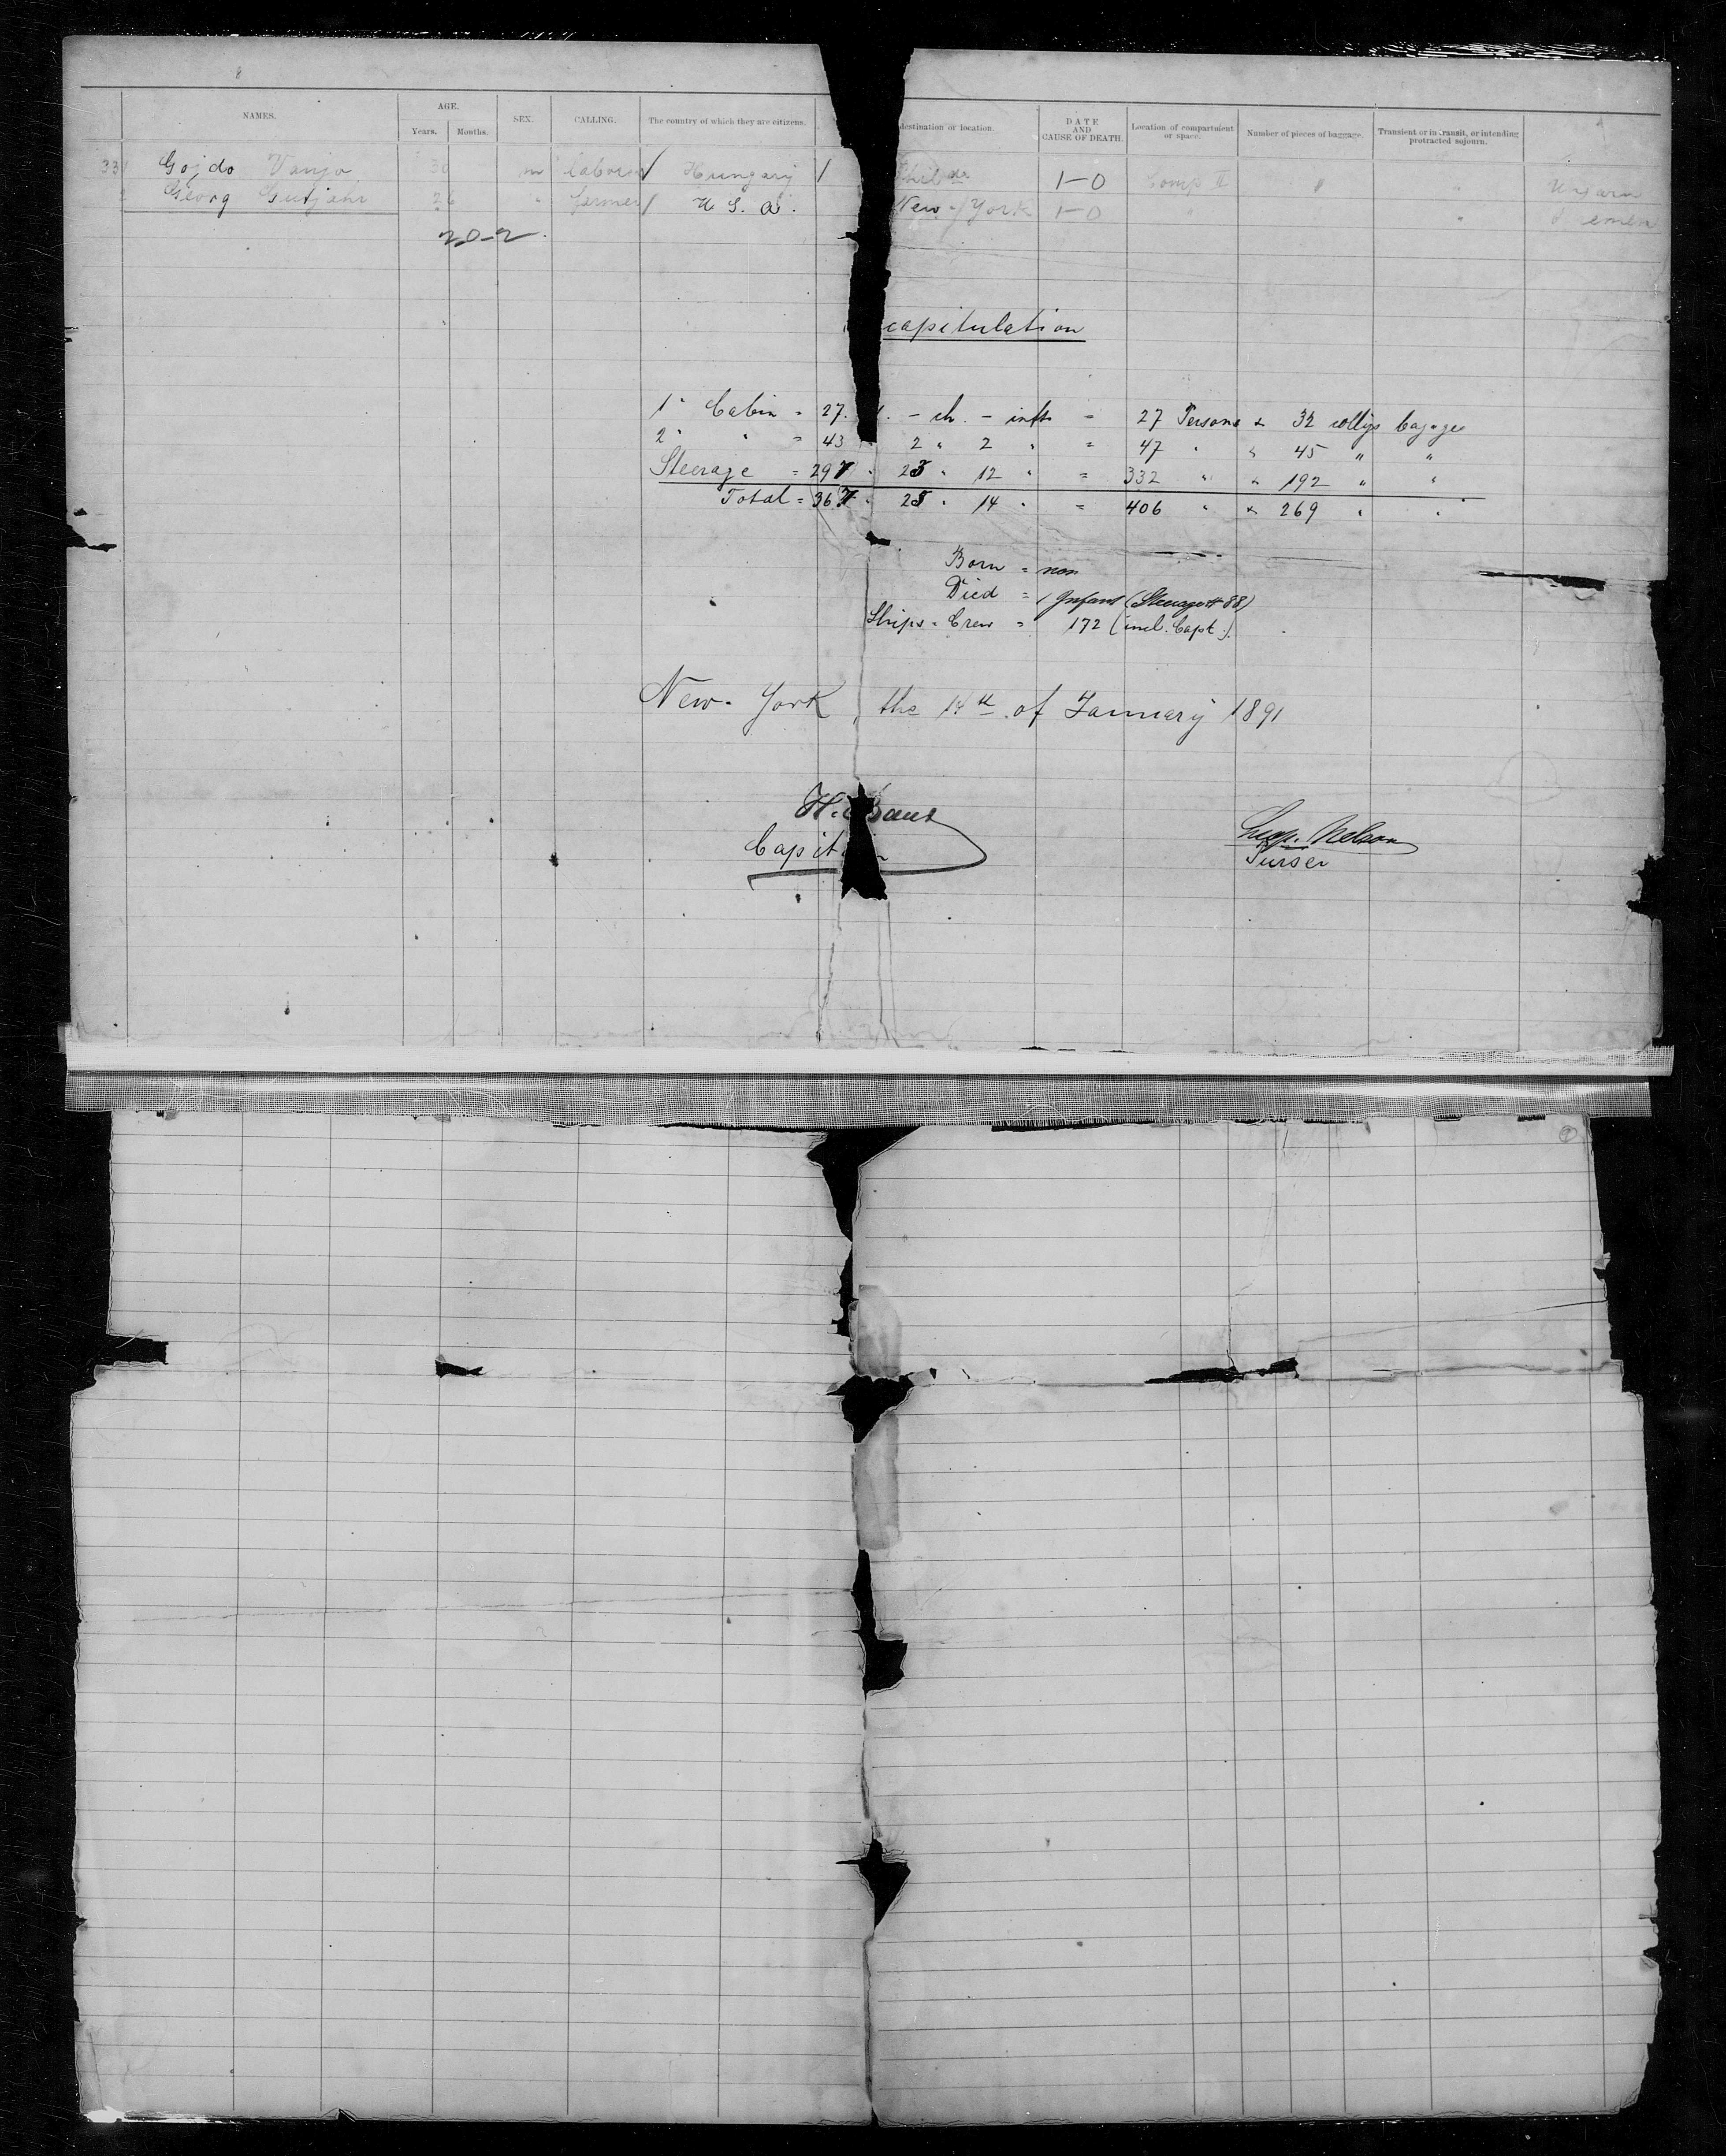 NAMES. AGE. Years. Months. SEX. CALLING. The country of which they are citizens. destination or location. DATE AND CAUSE OF DEATH. Location of compartment or space. Number of pieces of baggage. Transient or in transit, or intending protracted sojourn.
331 Gojdo Vanjo 30 m laborer Hungary / Philda 1-0 Comp II " " Ungarn
2 Georg Gutjahr 26 " farmer U S. a. New-York 1-0 " " Bremen
20-2
capitulation
1" Cabin = 27. - ch. - infts = 27 Persons & 32 collys bagage
2" " = 43 2 " 2 " = 47 " & 45 " "
Steerage = 297 " 23 " 12 " = 332 " & 192 " "
Total = 367 " 25 " 14 " = 406 " & 269 " "
Born = non
Died = 1 Infant (Steerage # 88)
Ships-Crew = 172 (incl. Capt.)
New-York, the 14th of January 1891
H.
Capit
Nelson
Purser